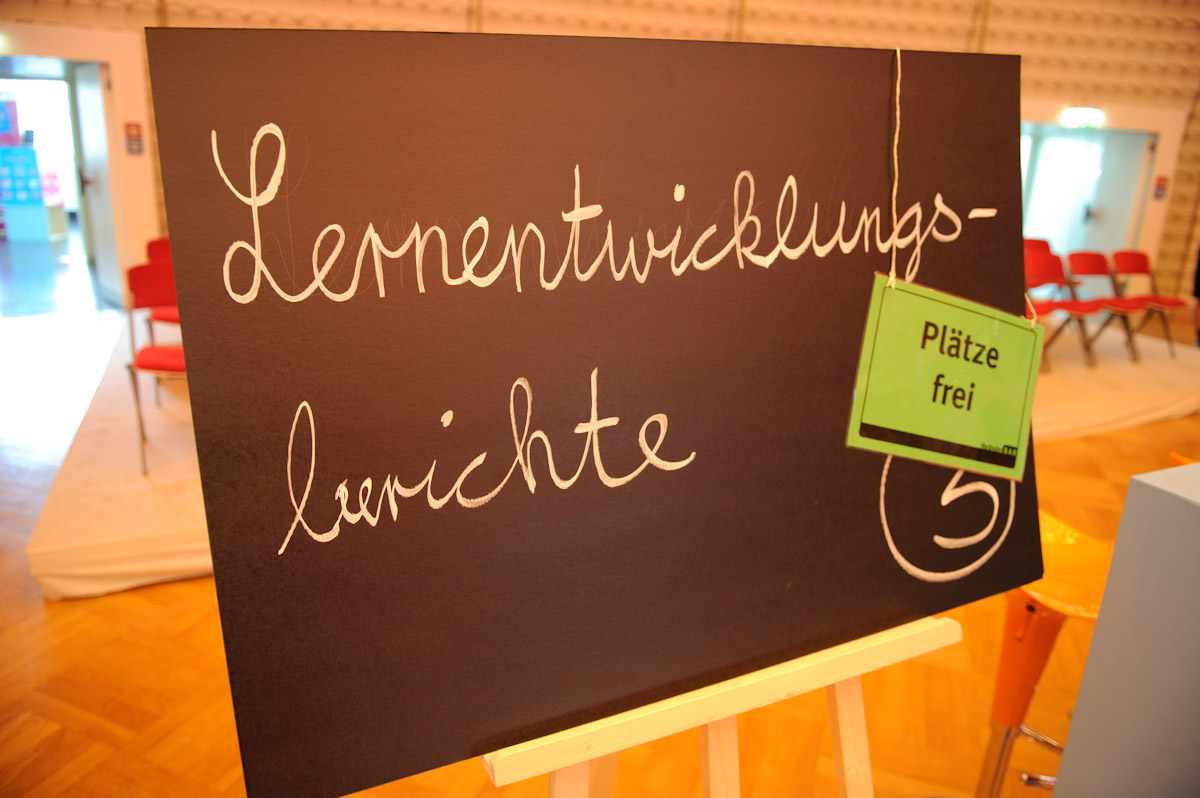 Lernentwicklungs-
berichte
Plätze
frei
5